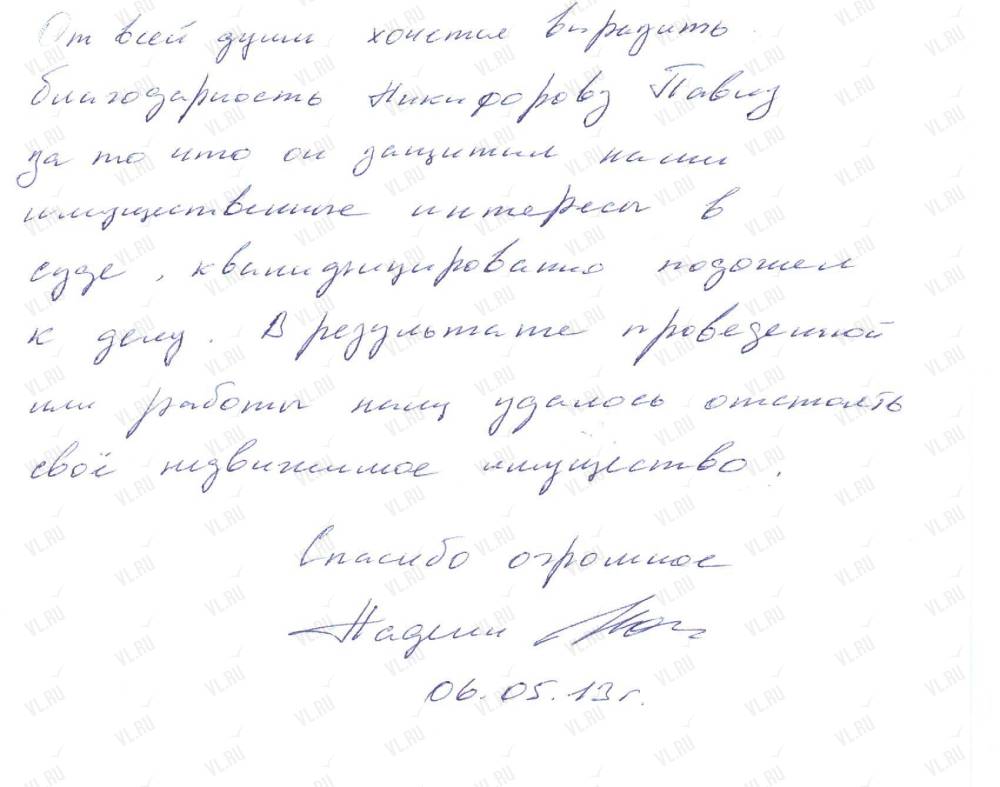 От всей души хочется выразить
благодарность Никифорову Павлу
за то что он защитил наши
имущественные интересы в
суде, квалифицировано подошел
к делу. В результате проведенной
им работы нам удалось отстоять
своё недвижимое имущество.
Спасибо огромное
06.05.13 г.